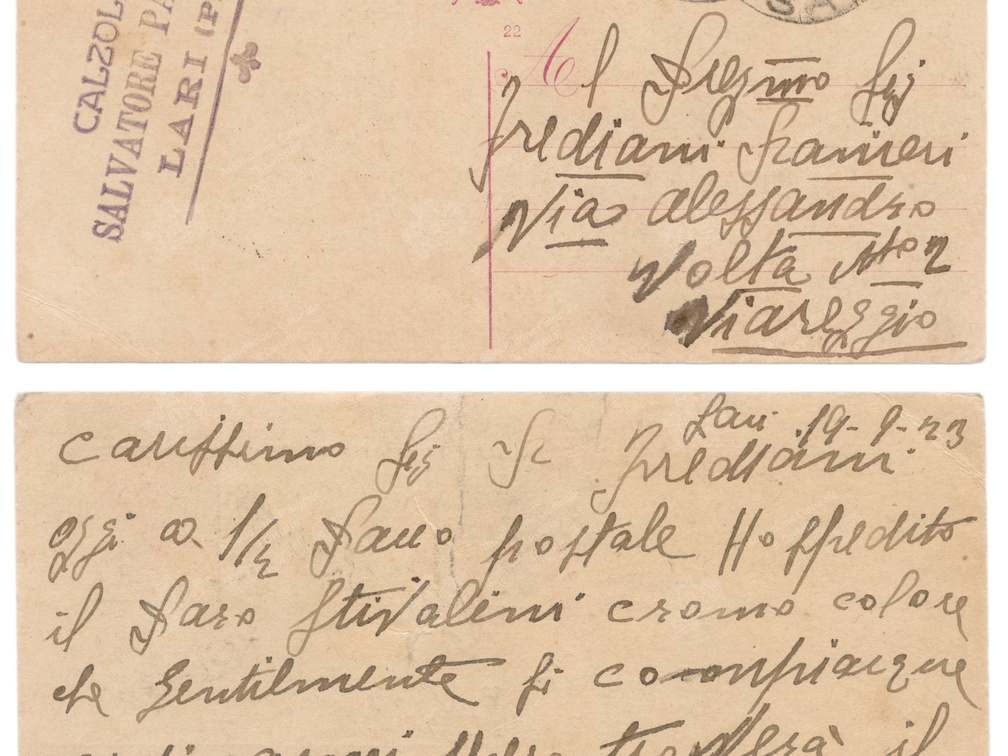 CALZOL
SALVATORE PA
LARI (P
22
Al Pregmo Sig
Frediani Ranieri
Via Alessandro
Volta No 2
Viareggio
Lari 19-9-23
Carissimo Sig Frediani
oggi a 1/2 Pacco postale Ho Spedito
il Paro Stivalini cromo colore
che Gentilmente Si compiacque
il